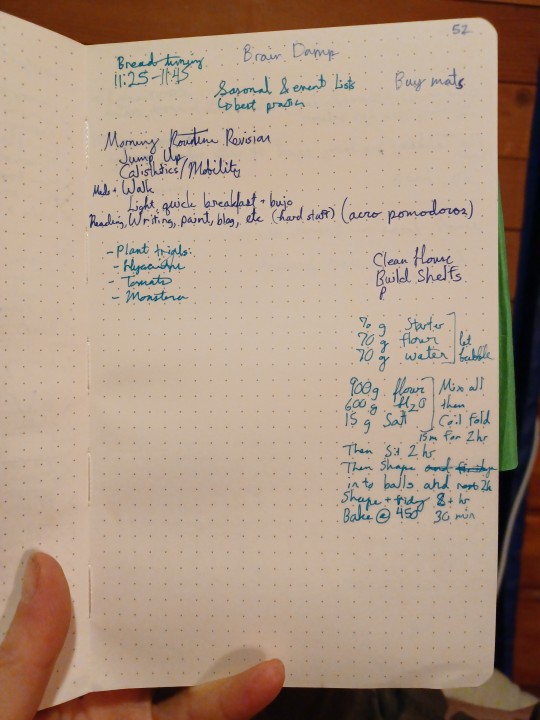 52
Brain Damp
Bread timing
11:25-11:45
Saronal & event Lists
↳ best practice
Buy mats
Morning Routine Revision
Jump Up
Calisthtics/Mobility
Walk
Light, quick breakfast + bujo
Reading, Writing, paint, blog, etc (hard stuff) (aero pomodoros)
- Plant trials:
- Hyacinths
- Tomato
- Monstera
Clean House
Build Shelfs
P
70 g Starter
70 g flour
70 g water
let bubble
900g flour
600 g H2O
15 g Salt
Mix all
then
Coil Fold
15m for 2 hr
Then Sit 2 hr
Then Shape
in to balls and rest 2h
Shape + fridg 8+ hr
Bake @ 450° 30 min